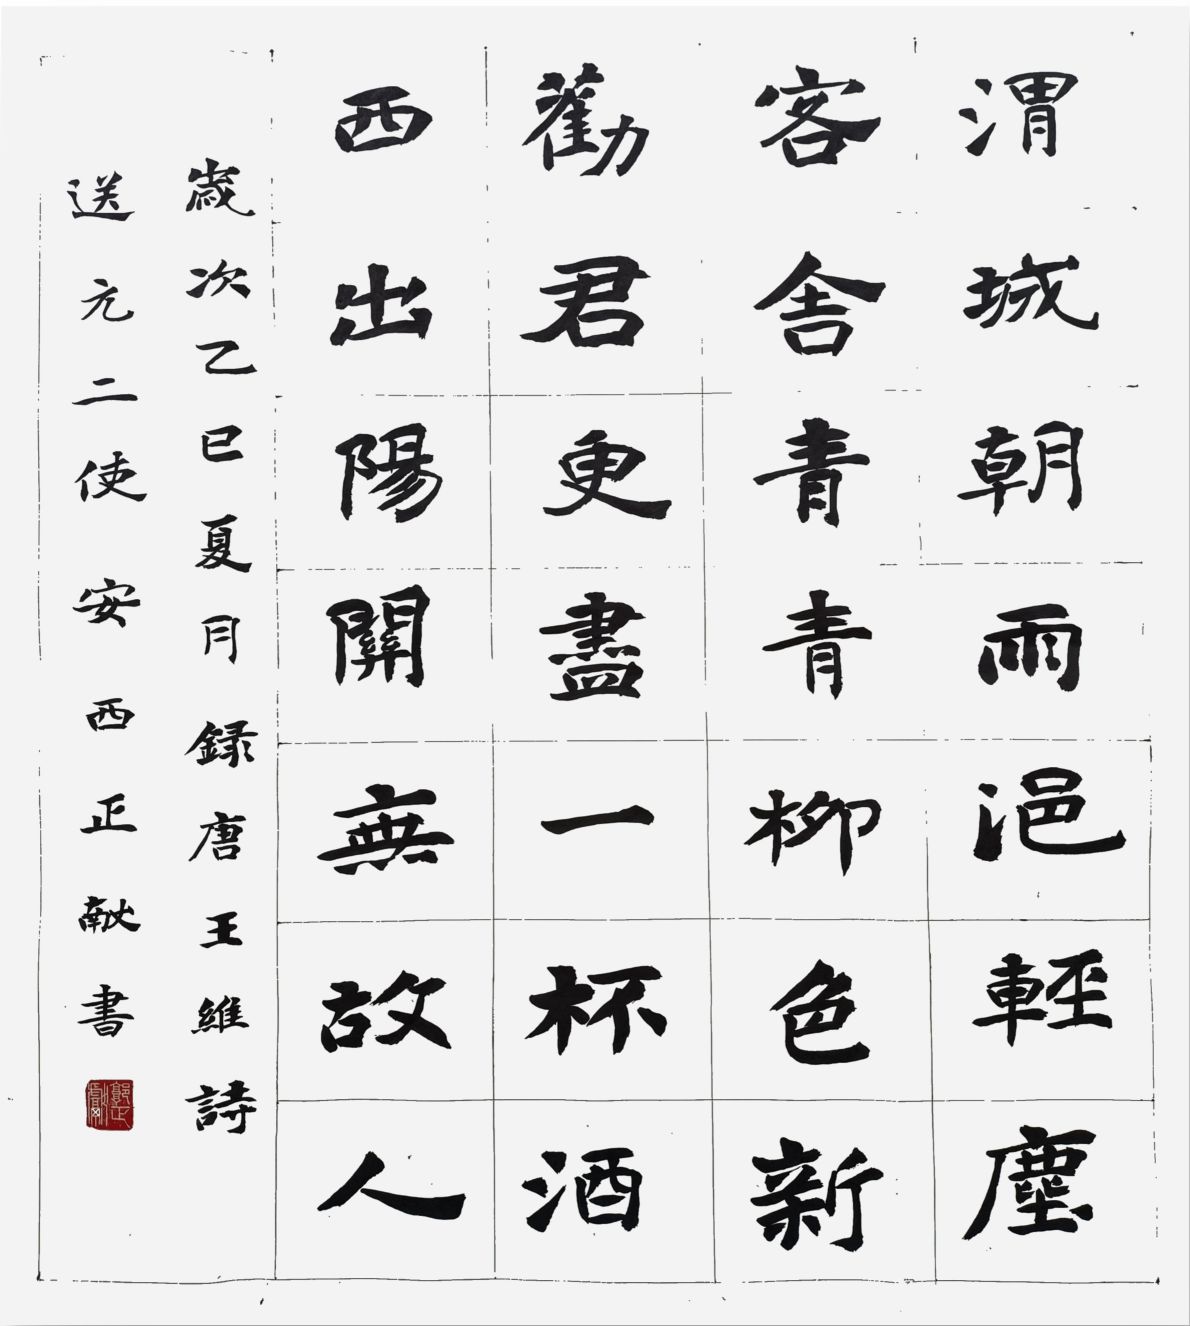 渭城朝雨浥輕塵
客舍青青柳色新
勸君更盡一杯酒
西出陽關無故人
歲次乙巳夏月録唐王維詩
送元二使安西正献書